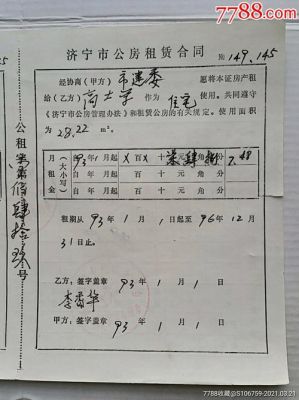 7788.com
济宁市公房租赁合同
№ 149.145
经协商(甲方) 市建委 愿将本证房产租
给(乙方) 作为 住宅 使用。共同遵守
《济宁市公房管理办法》和租赁公房的有关规定。使用面积
为 28.22 m²。
月租金
(大小写)
93年 1月起 X百X十 柒元肆角捌分 7.48
年 月起 百 十 元 角 分
年 月起 百 十 元 角 分
租期从 93 年 1 月 1 日起至 96 年 12 月
31 日止。
乙方:签字盖章 93 年 1 月 1 日
甲方:签字盖章 93 年 1 月 1 日
公租 字 肆拾 号
7788收藏@S106759-2021.03.21